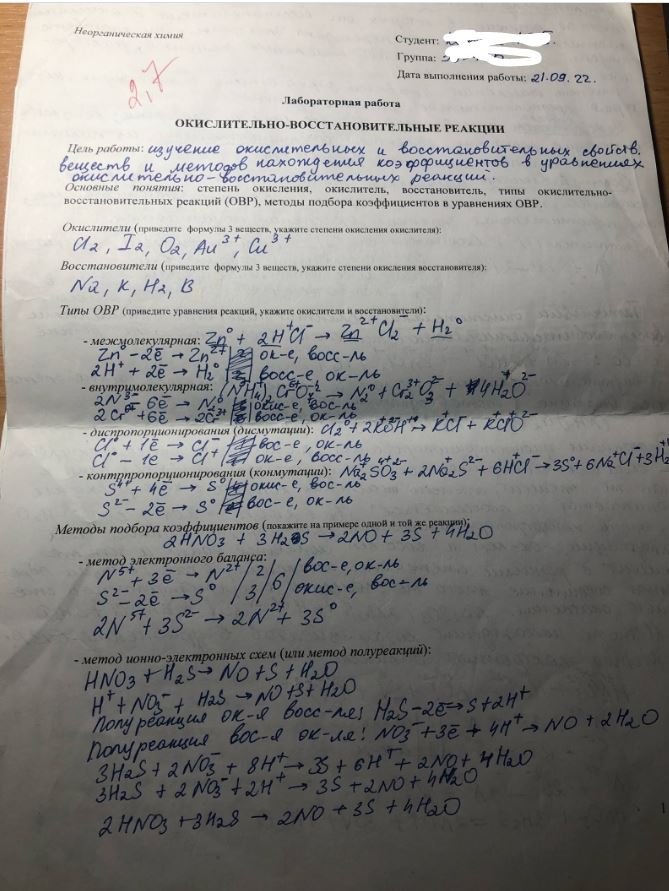 Неорганическая химия
Студент:
Группа:
Дата выполнения работы: 21.09.22.
2,7
Лабораторная работа
ОКИСЛИТЕЛЬНО-ВОССТАНОВИТЕЛЬНЫЕ РЕАКЦИИ
Цель работы: изучение окислительных и восстановительных свойств
веществ и методов нахождения коэффициентов в уравнениях
окислительно-восстановительных реакций.
Основные понятия: степень окисления, окислитель, восстановитель, типы окислительно-
восстановительных реакций (ОВР), методы подбора коэффициентов в уравнениях ОВР.
Окислители (приведите формулы 3 веществ, укажите степени окисления окислителя):
Cl2, I2, O2, Au³⁺, Cu³⁺
Восстановители (приведите формулы 3 веществ, укажите степени окисления восстановителя):
Na, K, H2, B
Типы ОВР (приведите уравнения реакций, укажите окислители и восстановители):
- межмолекулярная: Zn⁰ + 2H⁺Cl⁻ → Zn²⁺Cl2⁻ + H2⁰
Zn⁰ - 2ē → Zn²⁺ ок-е, восс-ль
2H⁺ + 2ē → H2⁰ восс-е, ок-ль
- внутримолекулярная: (NH4)2Cr2O7 → N2⁰ + Cr2³⁺O3²⁻ + 4H2O²⁻
2N³⁻ - 6ē → N2⁰ окис-е, вос-ль
2Cr⁶⁺ + 6ē → 2Cr³⁺ восс-е, ок-ль
- диспропорционирования (дисмутации): Cl2⁰ + 2KOH → KCl + KClO
Cl⁰ + 1ē → Cl⁻ вос-е, ок-ль
Cl⁰ - 1ē → Cl⁺ ок-е, восс-ль
- контрпропорционирования (конмутации): Na2SO3 + 2Na2S²⁻ + 6HCl → 3S⁰ + 6Na⁺Cl⁻ + 3H2
S⁴⁺ + 4ē → S⁰ окис-е, вос-ль
S²⁻ - 2ē → S⁰ вос-е, ок-ль
Методы подбора коэффициентов (покажите на примере одной и той же реакции):
2HNO3 + 3H2S → 2NO + 3S + 4H2O
- метод электронного баланса:
N⁵⁺ + 3ē → N²⁺ / 2 / 6 / вос-е, ок-ль
S²⁻ - 2ē → S⁰ / 3 / окис-е, вос-ль
2N⁵⁺ + 3S²⁻ → 2N²⁺ + 3S⁰
- метод ионно-электронных схем (или метод полуреакций):
HNO3 + H2S → NO + S + H2O
H⁺ + NO3⁻ + H2S → NO + S + H2O
Полуреакция ок-я восс-ля: H2S - 2ē → S + 2H⁺
Полуреакция вос-я ок-ля: NO3⁻ + 3ē + 4H⁺ → NO + 2H2O
3H2S + 2NO3⁻ + 8H⁺ → 3S + 6H⁺ + 2NO + 4H2O
3H2S + 2NO3⁻ + 2H⁺ → 3S + 2NO + 4H2O
2HNO3 + 3H2S → 2NO + 3S + 4H2O
1